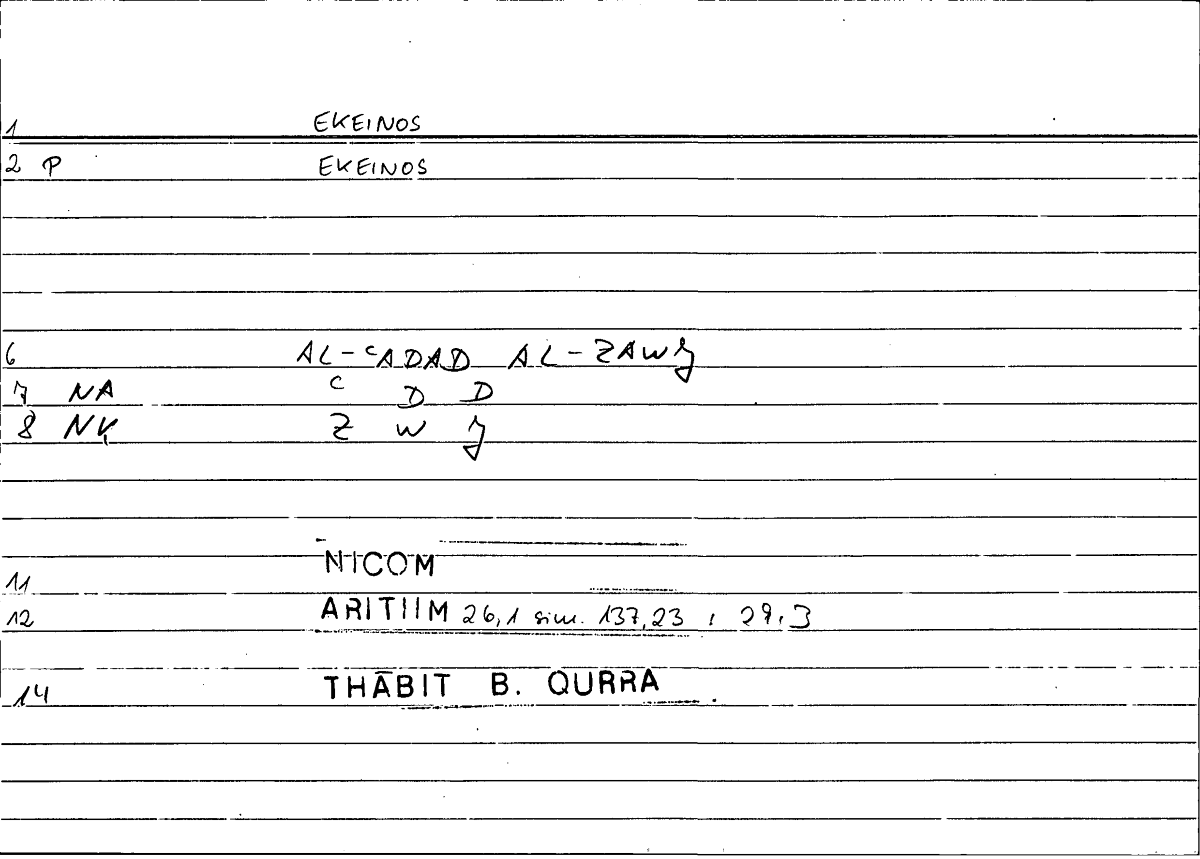 1 EKEINOS
2 P EKEINOS
6 AL-ᶜADAD AL-ZAWJ
7 NA ᶜ D D
8 NK Z W J
11 NICOM
12 ARITHM 26,1 sim. 137,23 ; 29,3
14 THĀBIT B. QURRA